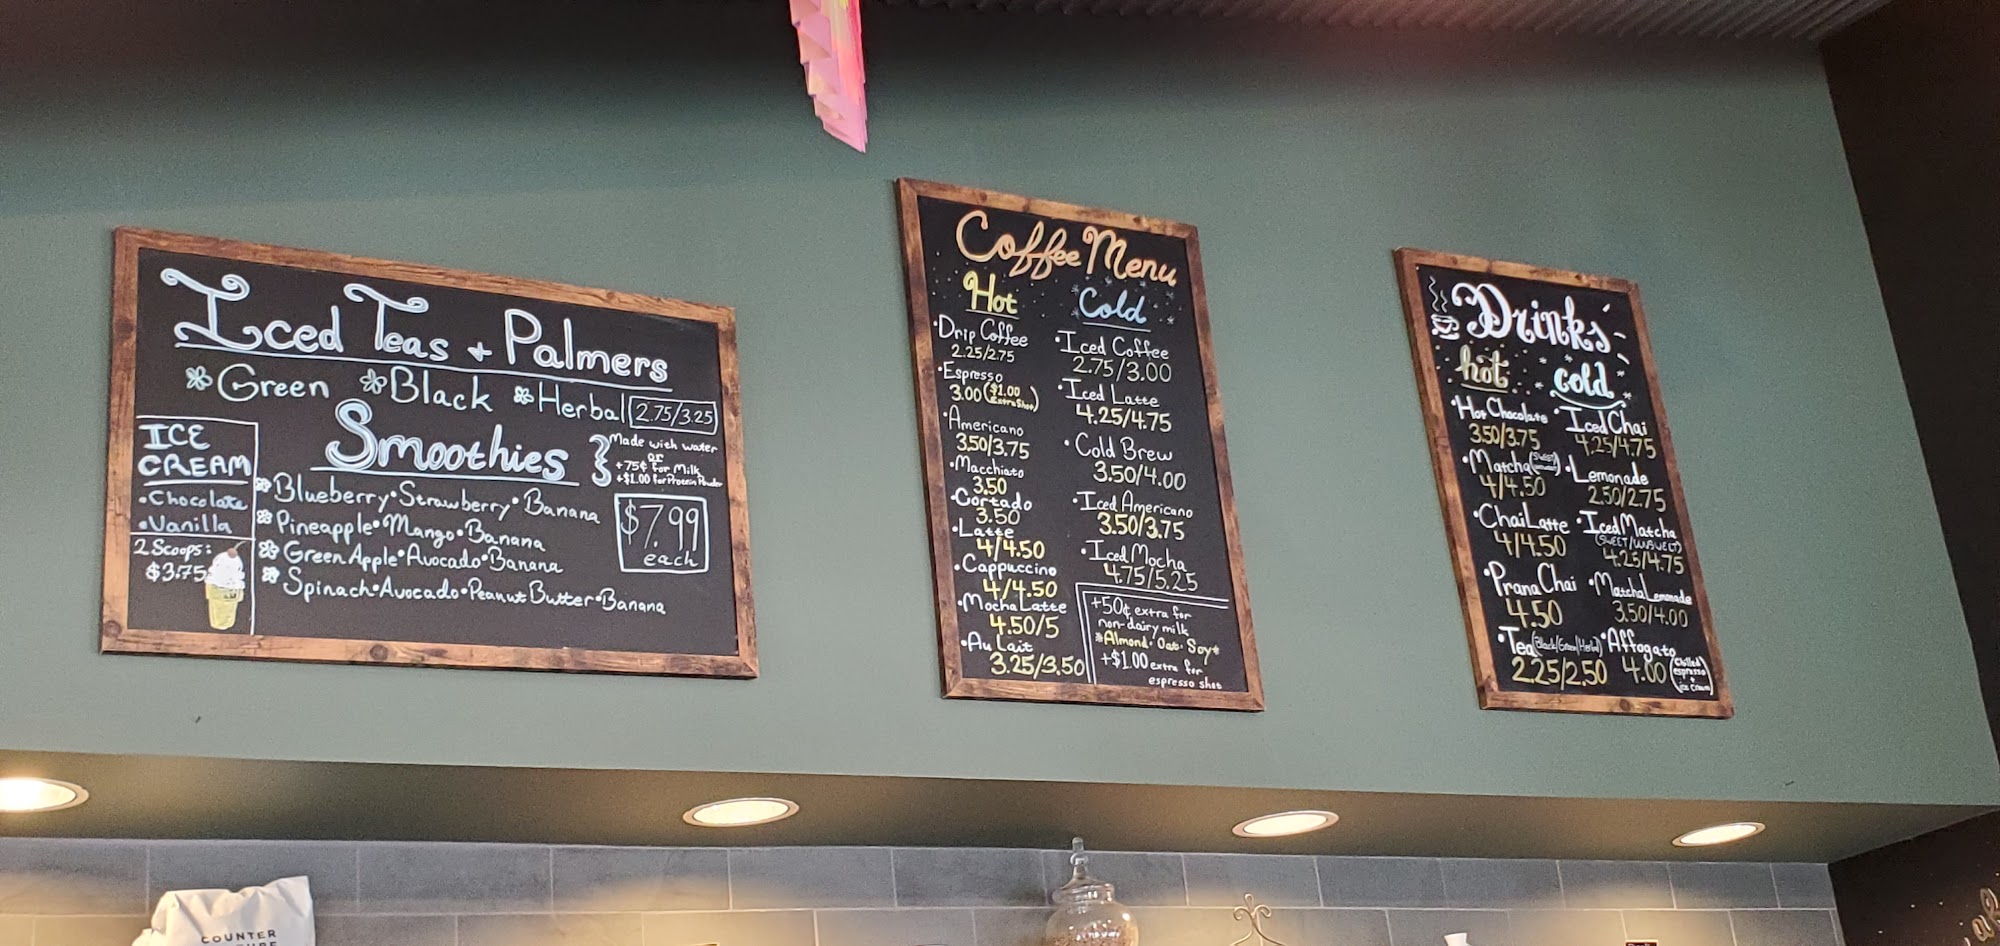 Iced Teas + Palmers
Green Black Herbal 2.75/3.25
ICE
CREAM
Chocolate
Vanilla
2 Scoops:
$3.75
Smoothies
Made with water
or
+75¢ for Milk
+$1.00 for Protein Powder
Blueberry•Strawberry•Banana
Pineapple•Mango•Banana
Green Apple•Avocado•Banana
Spinach•Avocado•Peanut Butter•Banana
$7.99
each
Coffee Menu
Hot
•Drip Coffee
2.25/2.75
•Espresso
3.00 ($1.00
Extra Shot)
•Americano
3.50/3.75
•Macchiato
3.50
•Cortado
3.50
•Latte
4/4.50
•Cappuccino
4/4.50
•Mocha Latte
4.50/5
•Au Lait
3.25/3.50
Cold
•Iced Coffee
2.75/3.00
•Iced Latte
4.25/4.75
•Cold Brew
3.50/4.00
•Iced Americano
3.50/3.75
•Iced Mocha
4.75/5.25
+50¢ extra for
non-dairy milk
*Almond•Oat•Soy*
+$1.00 extra for
espresso shot
Drinks
hot
•Hot Chocolate
3.50/3.75
•Matcha
4/4.50
•Chai Latte
4/4.50
•Prana Chai
4.50
•Tea (Black/Green/Herbal)
2.25/2.50
cold
•Iced Chai
4.25/4.75
•Lemonade
2.50/2.75
•Iced Matcha
(SWEET/UNSWEET)
4.25/4.75
•Matcha Lemonade
3.50/4.00
•Affogato
4.00 (Chilled
espresso
+
ice cream)
COUNTER